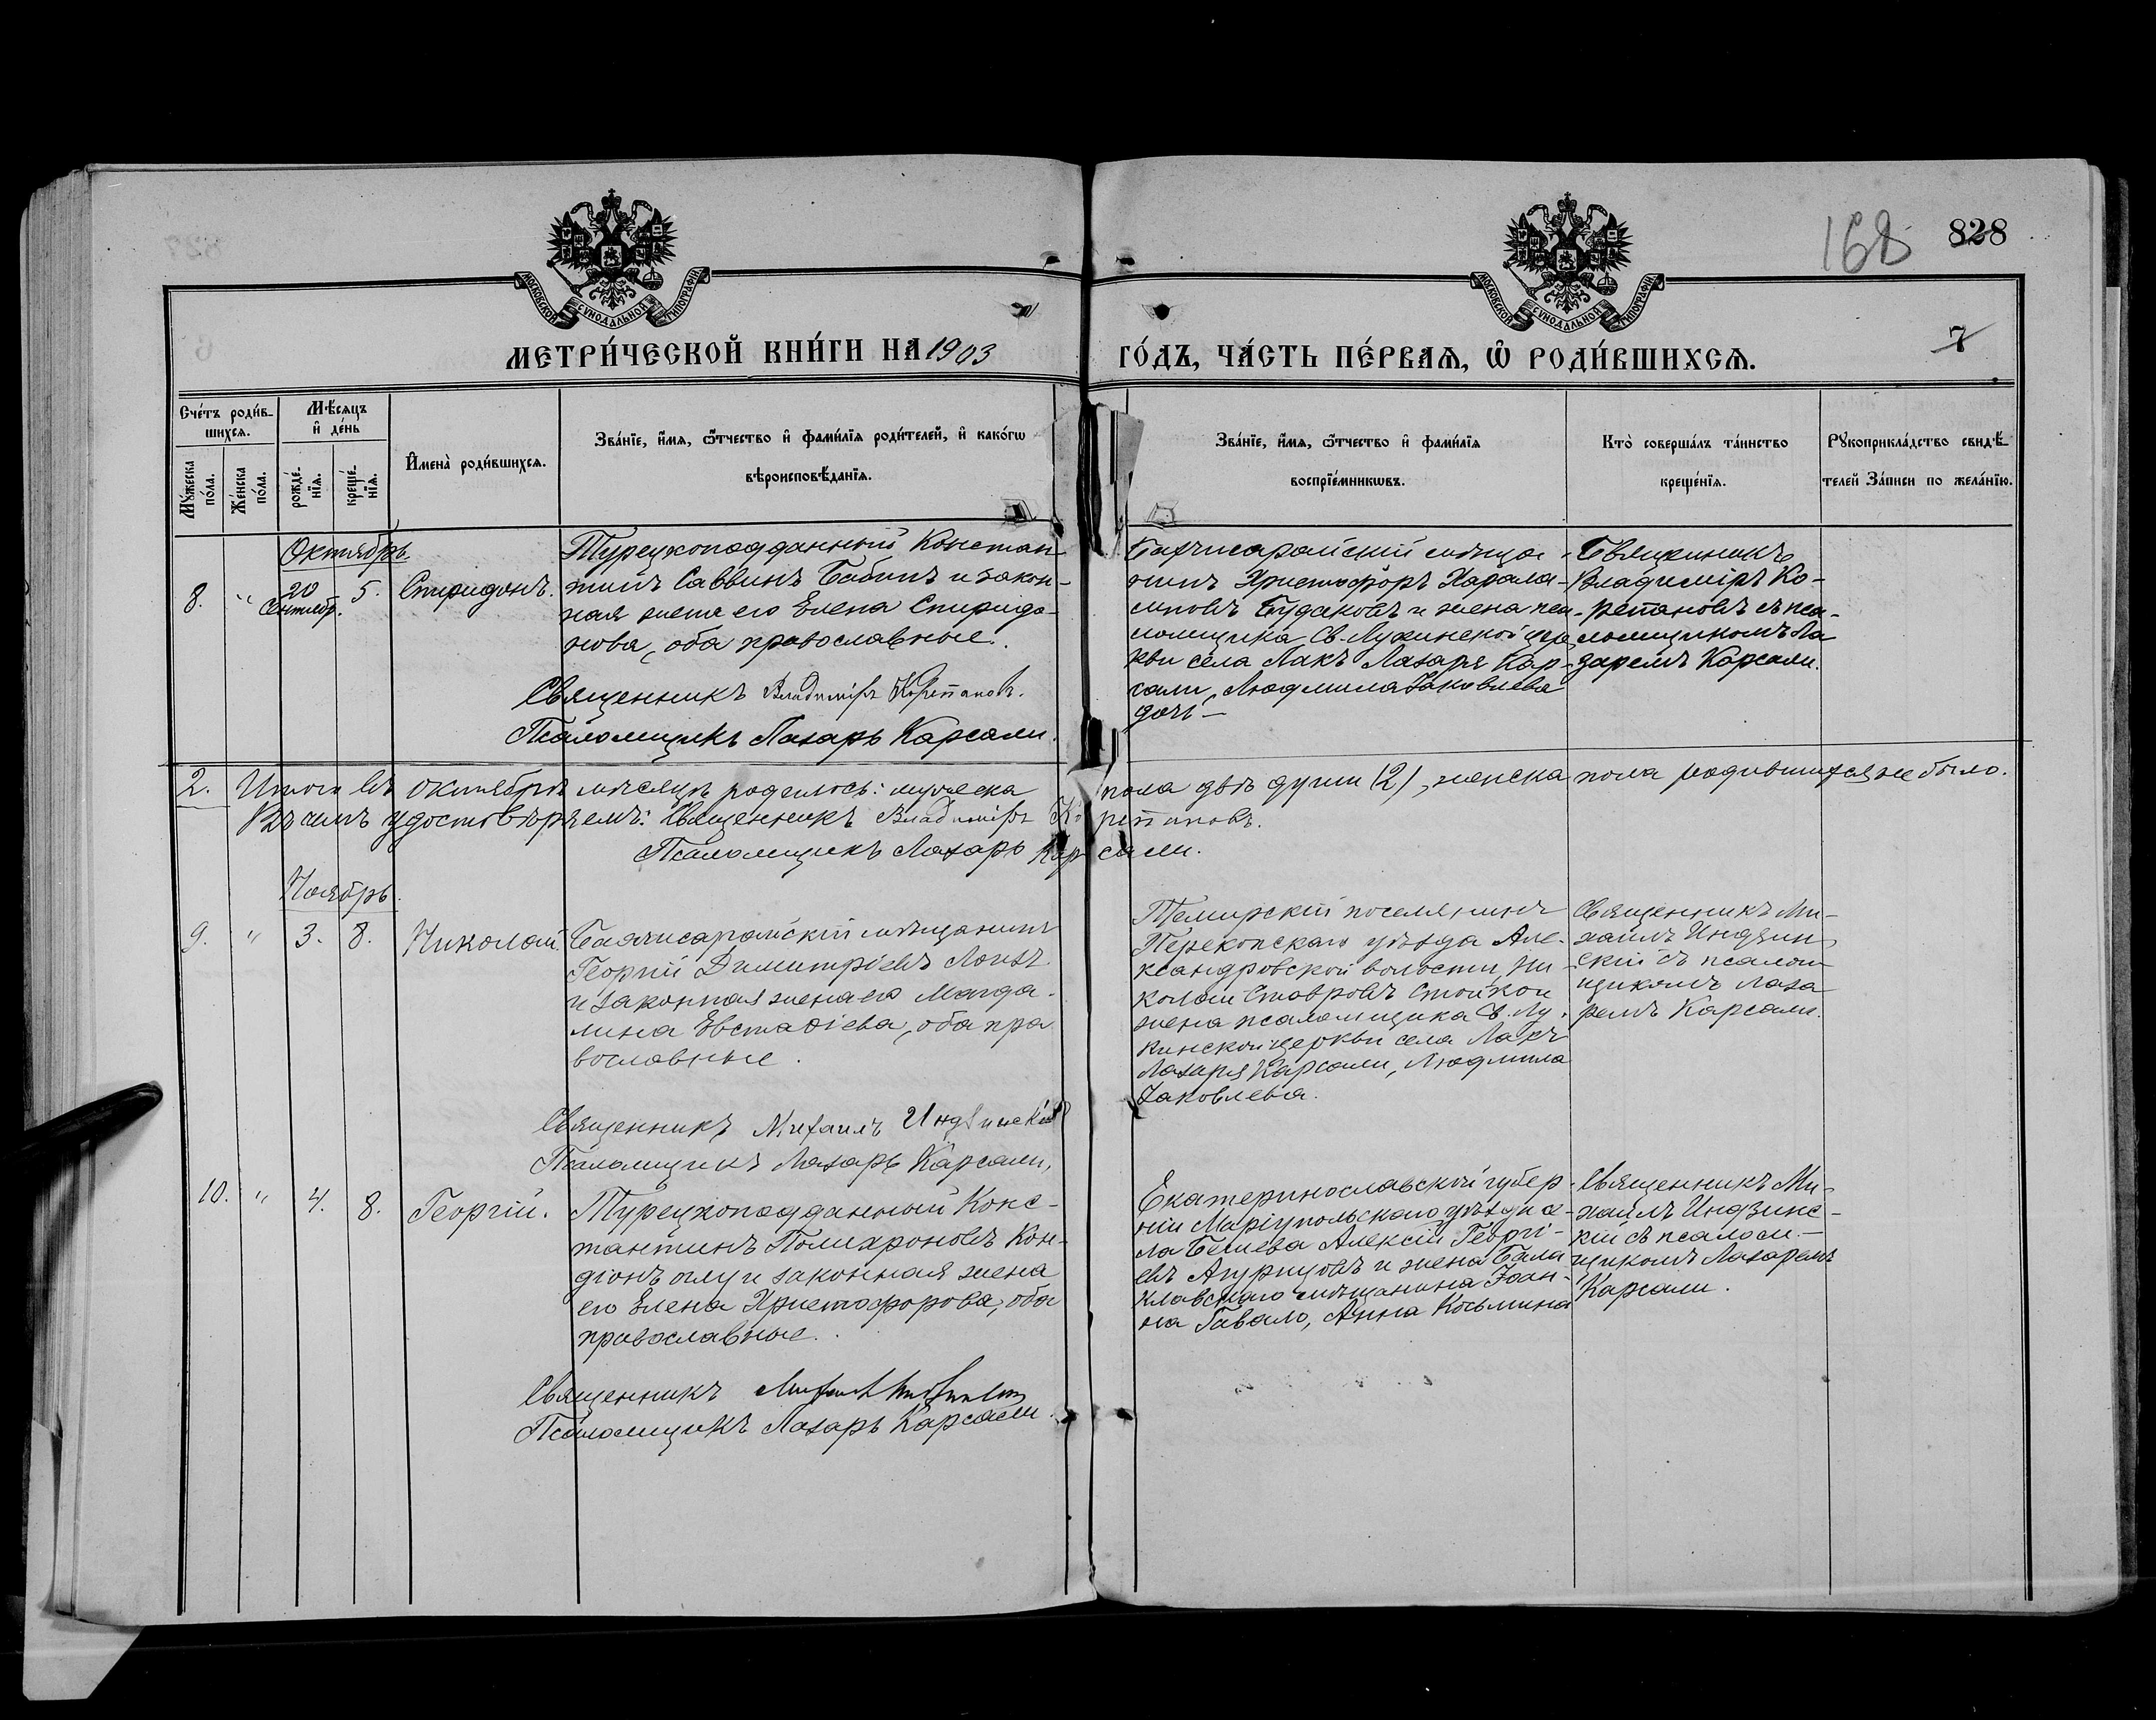 168 828
МОСКОВСКОЙ СѴНОДАЛЬНОЙ ТИПОГРАФІИ
МОСКОВСКОЙ СѴНОДАЛЬНОЙ ТИПОГРАФІИ
МЕТРИ́ЧЕСКОЙ КНИ́ГИ НА 1903
ГО́ДЪ, ЧА́СТЬ ПЕ́РВАѦ, Ѽ РОДИ́ВШИХСѦ.
7
Сче́тъ роди́в-
шихсѧ.
Мꙋ́жеска
по́ла.
Же́нска
по́ла.
Мѣ́сѧцъ
и҆ де́нь
рожде́-
нїѧ.
креще́-
нїѧ.
И҆мена̀ роди́вшихсѧ.
Зва́нїе, и҆́мѧ, ѻ҆́тчество и҆ фами́лїѧ роди́телей, и҆ како́гѡ
вѣроисповѣ́данїѧ.
Зва́нїе, и҆́мѧ, ѻ҆́тчество и҆ фами́лїѧ
воспрїе́мникѡвъ.
Кто̀ соверша́лъ та́инство
креще́нїѧ.
Рꙋкоприкла́дство свидѣ́-
телей За́писи по жела́нїю.
Октябрь
8. " 20 Сентябр. 5. Спиридонъ.
Турецкоподданный Констан-
тинъ Саввинъ Бабинъ и закон-
ная жена его Елена Спиридо-
нова, оба православные.
Священникъ Владиміръ Коретановъ.
Псаломщикъ Лазарь Карсали.
Бахчисарайскій мѣща-
нинъ Христофоръ Харала-
мповъ Будаковъ и жена пса-
ломщика Св. Лукинской цер
кви села Лакъ Лазаря Кар-
сали, Людмила Іаковлева
дочь
Священникъ
Владиміръ Ко-
ретановъ съ пса-
ломщикомъ Ла
заремъ Карсали.
2. Итого въ октябрѣ мѣсяцѣ родилось: мужеска пола двѣ души (2), женска пола родившихся не было.
Въ чемъ удостовѣряемъ: Священникъ Владиміръ Коретановъ.
Псаломщикъ Лазарь Карсали.
Ноябрь.
9. " 3. 8. Николай.
Бахчисарайскій мѣщанинъ
Георгій Димитріевъ
и законная жена его Магда-
лина Евстаѳіева, оба пра
вославные.
Священникъ Михаилъ Индзинскій
Псаломщикъ Лазарь Карсали,
Темирскій поселянинъ
Перекопскаго уѣзда Але-
ксандровской волости, Ни-
колай Ставровъ
жена псаломщика Св. Лу-
кинской церкви села Лакъ
Лазаря Карсали, Людмила
Іаковлева.
Священникъ Ми-
хаилъ Индзин-
скій съ псалом-
щикомъ Лаза
ремъ Карсали.
10. " 4. 8. Георгій.
Турецкоподданный Конс-
тантинъ Полихроновъ Кон-
діонъ оглу и законная жена
его Елена Христофорова, оба
православные.
Священникъ
Псаломщикъ Лазарь Карсали.
Екатеринославской губер-
ніи Маріупольскаго уѣзда се-
ла Бешева Алексій Георгі-
евъ Агурцовъ и жена Бала
клавскаго мѣщанина Іоан-
на Гавало, Анна Косьмина
Священникъ Ми-
хаилъ Индзинс-
кій съ псалом-
щикомъ Лазаремъ
Карсали.